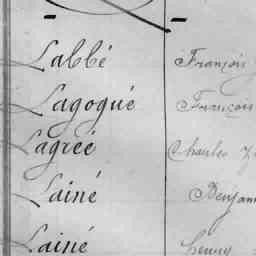 Labbé François
Lagogué François
Lagreé Charles
Lainé
Lainé henry